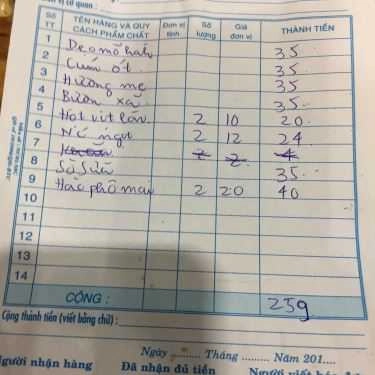 Đơn vị cơ quan :
Số TT TÊN HÀNG VÀ QUY CÁCH PHẨM CHẤT Đơn vị tính Số lượng Giá đơn vị THÀNH TIỀN
1 35
2 Cum ớt 35
3 Hương mẹ 35
4 Bươn xả 35
5 Hột vịt lộn 2 10 20
6 N'c ngọt 2 12 24
7 2 2 4
8 Sò Sữa 35
9 Hàc phô mai 2 20 40
10
11
12
13
14
CỘNG : 259
Cộng thành tiền (viết bằng chữ) :
Ngày ......... Tháng ......... Năm 201....
Người nhận hàng Đã nhận đủ tiền Người viết hóa đơn